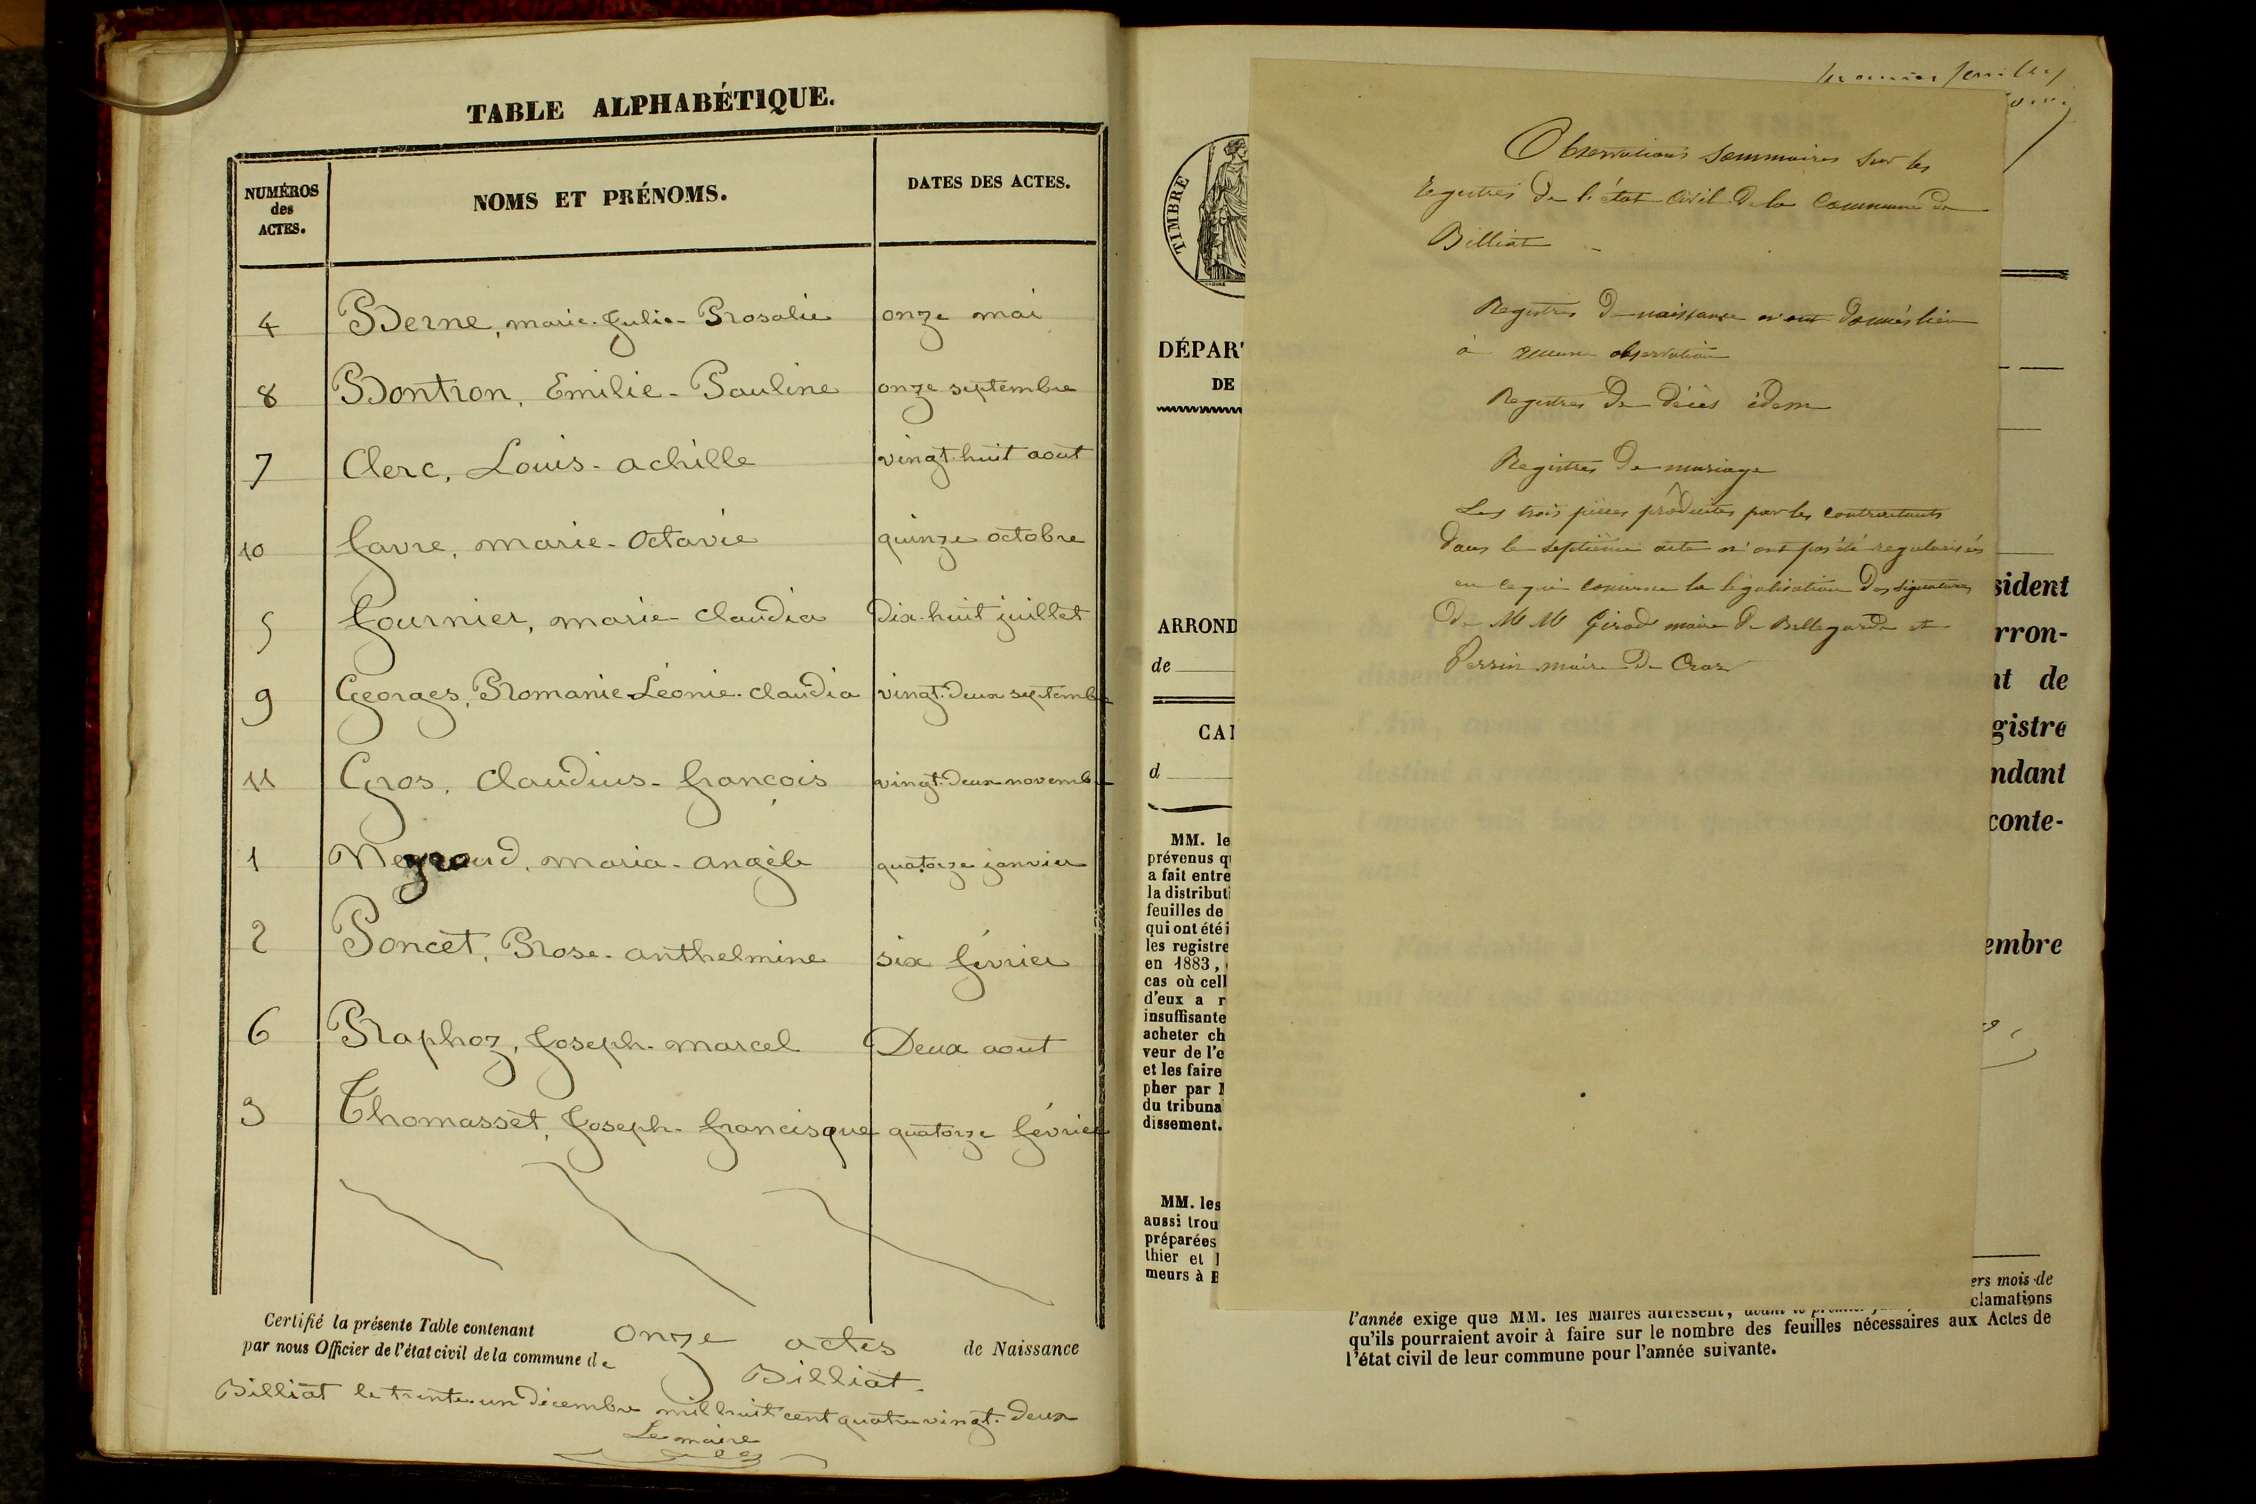 TABLE ALPHABÉTIQUE.
NUMÉROS
des
ACTES.
NOMS ET PRÉNOMS.
DATES DES ACTES.
4 Berne, marie-Julie-Rosalie onze mai
8 Bontron, Emilie-Pauline onze septembre
7 Clerc, Louis-achille vingt-huit aout
10 favre, marie-Octavie quinze octobre
5 fournier, marie-claudia Dix-huit juillet
9 Georges, Romanie-Léonie-claudia vingt-deux septembre
11 Gros, Claudius-françois vingt-deux novembre
1 maria-angèle quatorze janvier
2 Poncet, Rose-anthelmine six février
6 Raphoz, Joseph-marcel Deux aout
3 Thomasset, Joseph-francisque quatorze février
Certifié la présente Table contenant onze actes de Naissance
par nous Officier de l'état civil de la commune de Billiat.
Billiat le trente-un décembre mil huit cent quatre vingt-deux
Le maire
TIMBRE
DÉPAR
DE
ARROND
de
CAN
d
MM. le
prévenus q
a fait entre
la distributi
feuilles de
qui ont été i
les registre
en 1883,
cas où cell
d'eux a r
insuffisante
acheter ch
veur de l'e
et les faire
pher par
du tribuna
dissement.
MM. les
aussi trou
préparées
thier et
meurs à B
Observations sommaires sur les
registres de l'état civil de la Commune de
Billiat
Registres de naissance n'ont donnés lieu
à aucune observation
Registres de décès idem
Registres de mariage
Les trois pièces produites par les contractants
dans le septième acte n'ont pas été regularisées
en ce qui concerne la légalisation des signatures
de MM Girod maire de Bellegarde et
Perrin maire de Craz
sident
rron-
nt de
gistre
ndant
conte-
embre
ers mois de
clamations
l'année exige que MM. les Maires adressent, avant le premier
qu'ils pourraient avoir à faire sur le nombre des feuilles nécessaires aux Actes de
l'état civil de leur commune pour l'année suivante.